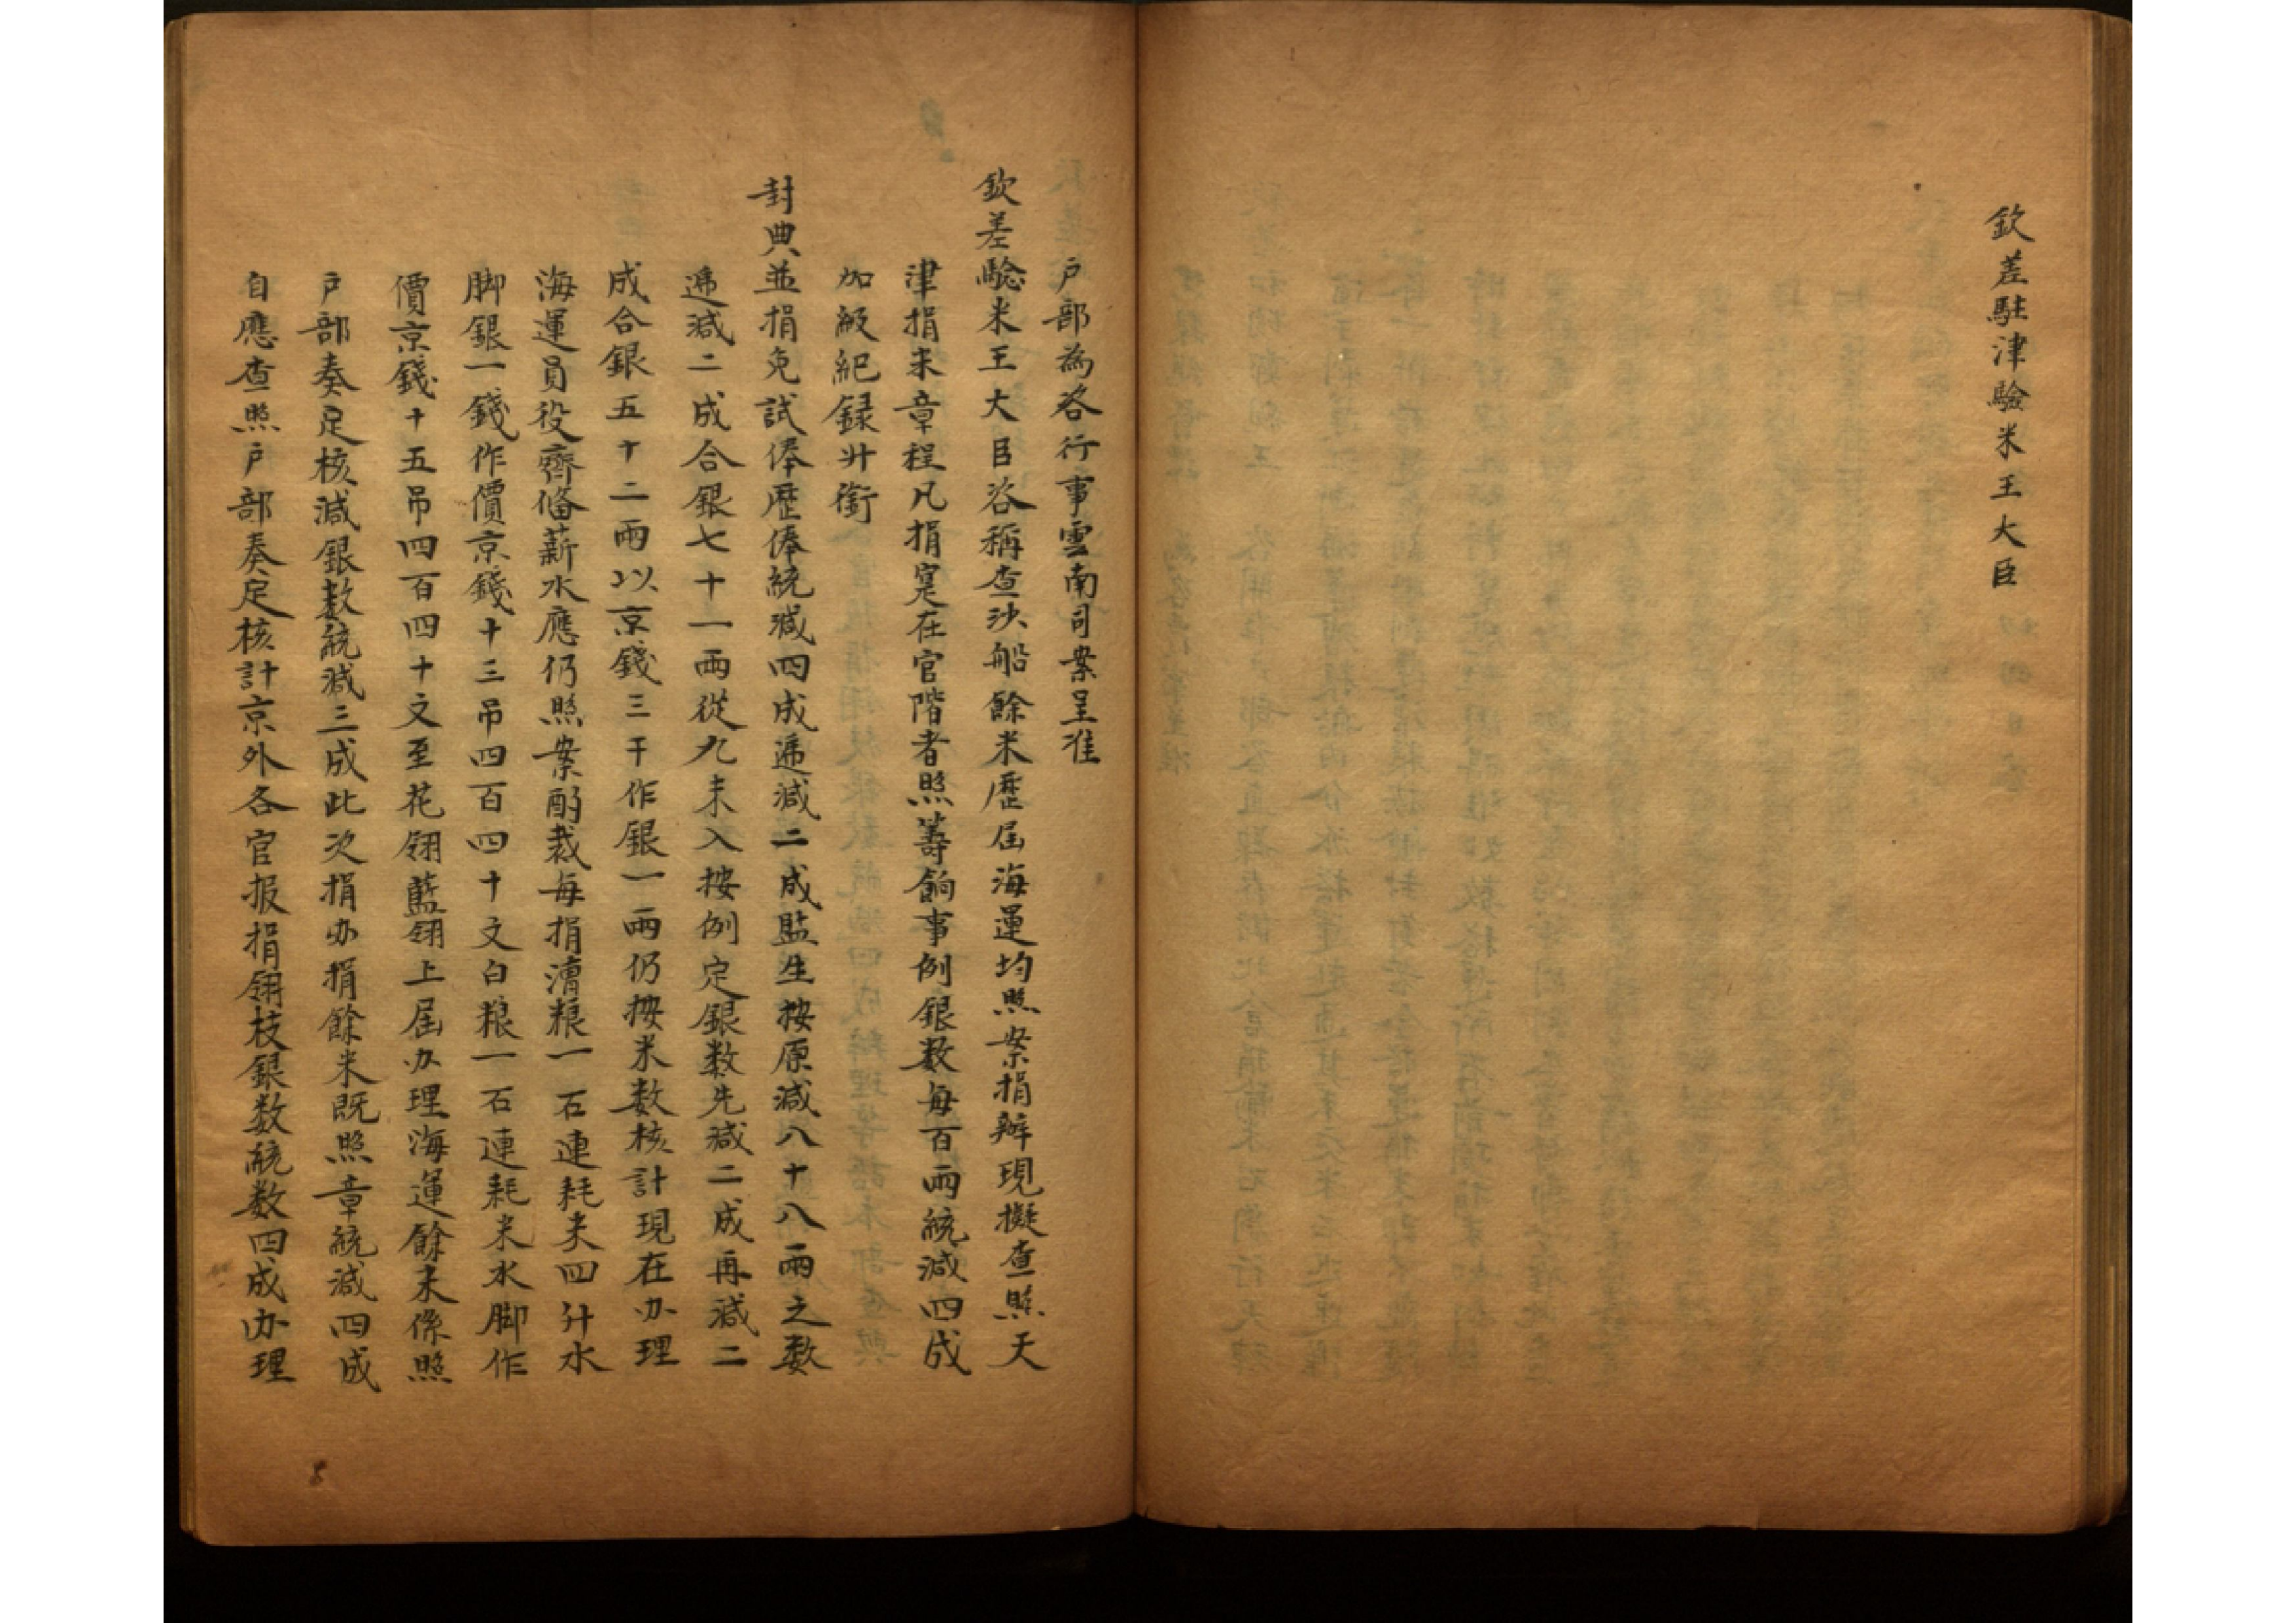 欽差駐津驗米王大臣
户部為咨行事雲南司案呈准
欽差驗米王大臣咨稱查沙船餘米歷屆海運均照案捐辦現擬查照天
津捐米章程凡捐寔在官階者照籌餉事例銀数每百兩統減四成
加級紀録升銜
封典並捐免試俸歷俸統減四成遞減二成監生按原減八十八兩之数
遞減二成合銀七十一兩從九未入按例定銀数先減二成再減二
成合銀五十二兩以京錢三千作銀一兩仍按米数核計現在办理
海運員役齊俻薪水應仍照案酌裁每捐漕粮一石連耗米四升水
脚銀一錢作價京錢十三吊四百四十文白粮一石連耗米水脚作
價京錢十五吊四百四十文至花翎藍翎上屆办理海運餘米係照
户部奏定核減銀数統減三成此次捐办捐餘米既照章統減四成
自應查照户部奏定核計京外各官报捐翎枝銀数統数四成办理